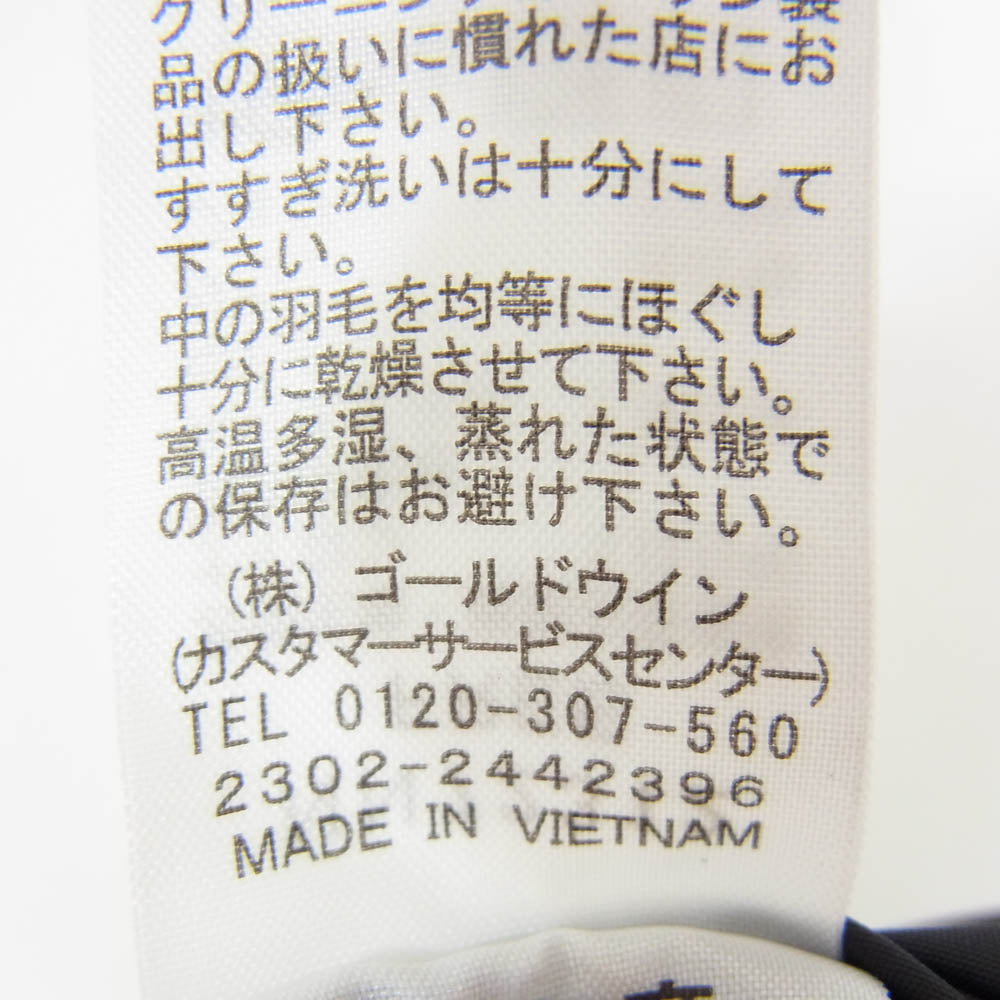 品の扱いに慣れた店にお
出し下さい。
すすぎ洗いは十分にして
下さい。
中の羽毛を均等にほぐし
十分に乾燥させて下さい。
高温多湿、蒸れた状態で
の保存はお避け下さい。
(株) ゴールドウイン
(カスタマーサービスセンター)
TEL 0120-307-560
2302-2442396
MADE IN VIETNAM